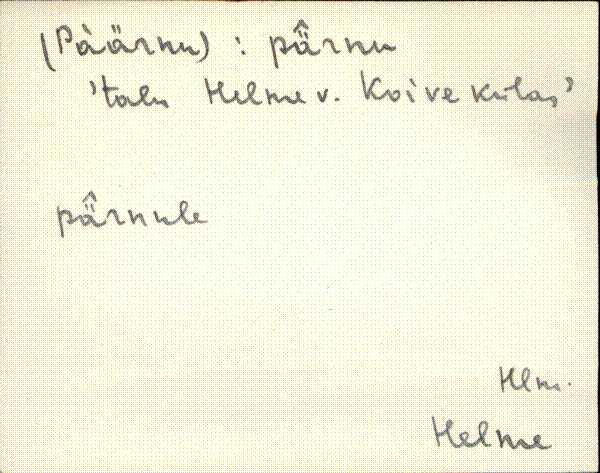 (Pàärnu) : pä̂rnu
'talu Helme v. Koive külas'
pä̂rnule
Hlm.
Helme